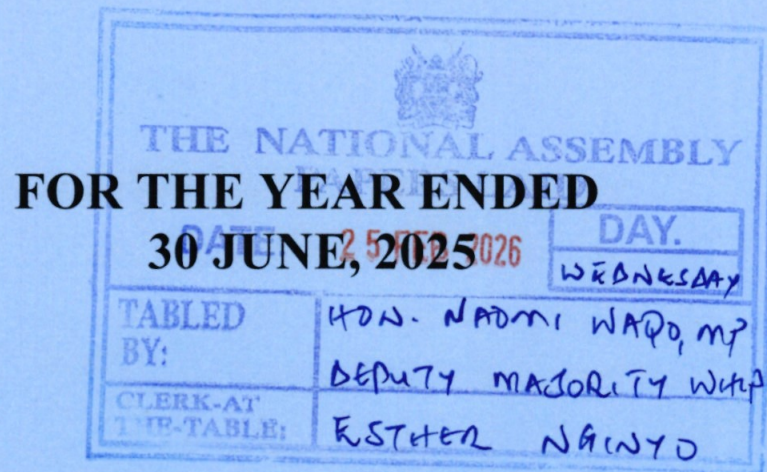 THE NATIONAL ASSEMBLY
PAPERS LAID
FOR THE YEAR ENDED
30 JUNE, 2025
DATE: 25 FEB 2026
DAY.
WEDNESDAY
TABLED
BY:
HON. NAOMI WAQO, MP
DEPUTY MAJORITY WHIP
CLERK-AT
THE-TABLE:
ESTHER NGINYO